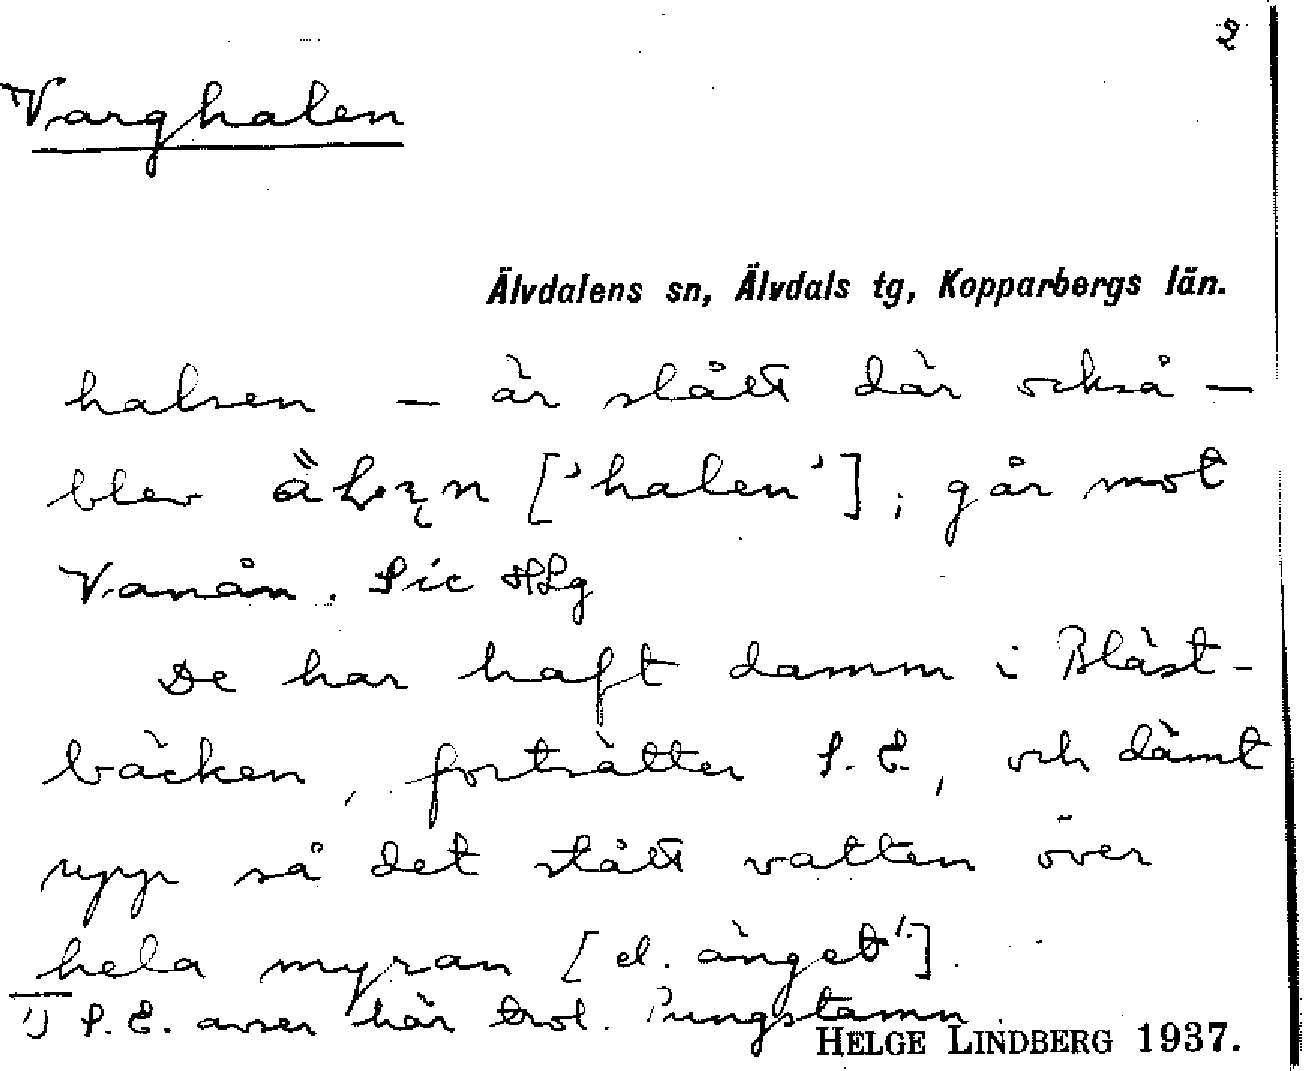 2
Varghalen
Älvdalens sn, Älvdals tg, Kopparbergs län.
halsen – är slått där också –
blev ['halen']; går mot
Vanån. Sic HLg
De har haft damm i Bläst-
bäcken, fortsätter S. E., och dämt
upp så det stått vatten över
hela myran [el. änget¹].
1) S. E. avser här trol. Pungstamn.
HELGE LINDBERG 1937.